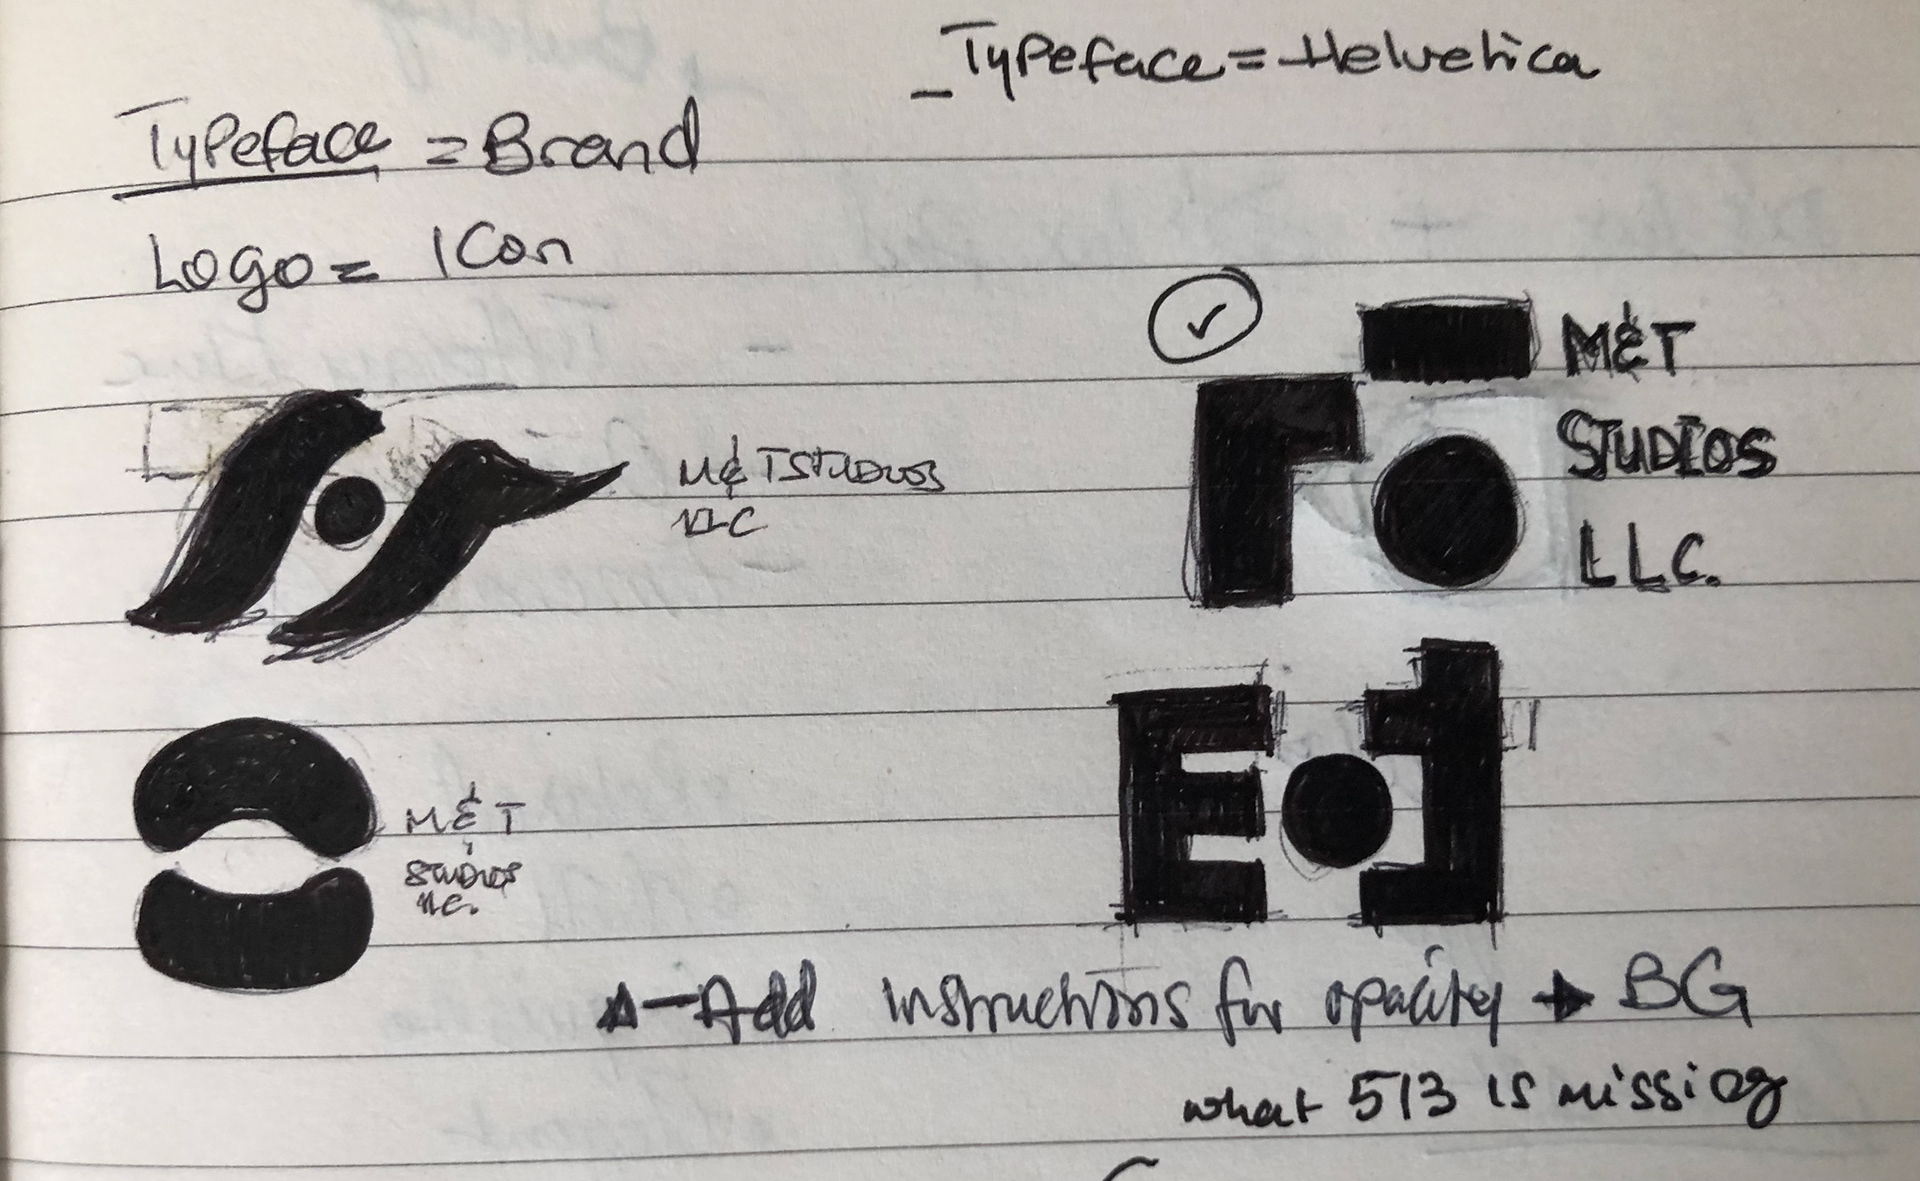 _Typeface = Helvetica
Typeface = Brand
Logo = Icon
M&T
STUDIOS
LLC.
M&T STUDIOS
LLC
M&T
STUDIOS
LLC.
Add instructions for opacity → BG
what 513 is missing